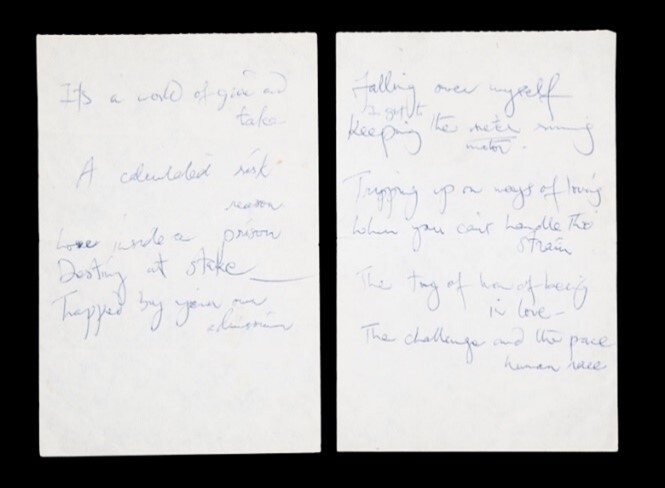 Its a world of give and
take
A calculated risk
reason
Love inside a prison
Destiny at stake
Trapped by your own
admission
Falling over myself
I got to
Keeping the meter running
motor
Tripping up on ways of loving
When you can't handle the
strain
The tug of war of being
in love
The challenge and the pace
human race